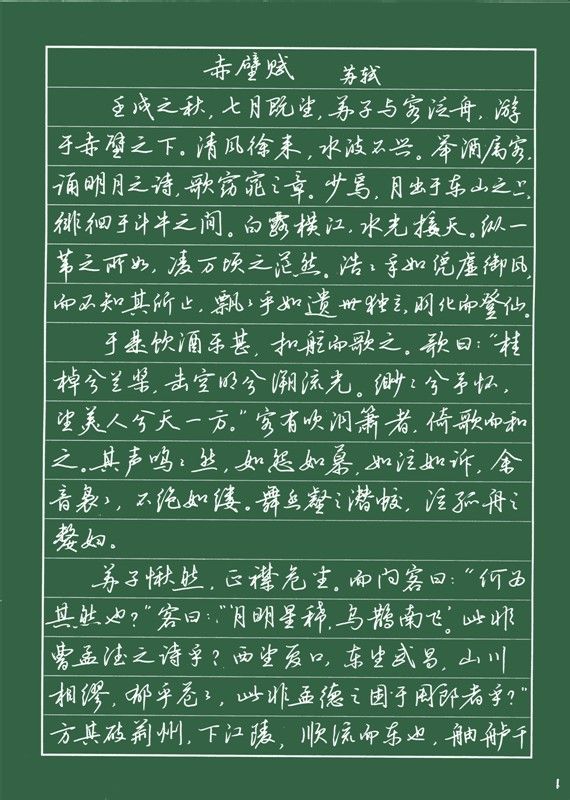 赤壁赋 苏轼
壬戌之秋，七月既望，苏子与客泛舟，游
于赤壁之下。清风徐来，水波不兴。举酒属客，
诵明月之诗，歌窈窕之章。少焉，月出于东山之上，
徘徊于斗牛之间。白露横江，水光接天。纵一
苇之所如，凌万顷之茫然。浩浩乎如凭虚御风，
而不知其所止，飘飘乎如遗世独立，羽化而登仙。
于是饮酒乐甚，扣舷而歌之。歌曰：“桂
棹兮兰桨，击空明兮溯流光。渺渺兮予怀，
望美人兮天一方。”客有吹洞箫者，倚歌而和
之。其声呜呜然，如怨如慕，如泣如诉，余
音袅袅，不绝如缕。舞幽壑之潜蛟，泣孤舟之
嫠妇。
苏子愀然，正襟危坐。而问客曰：“何为
其然也？”客曰：“‘月明星稀，乌鹊南飞’。此非
曹孟德之诗乎？西望夏口，东望武昌，山川
相缪，郁乎苍苍，此非孟德之困于周郎者乎？”
方其破荆州，下江陵，顺流而东也，舳舻千